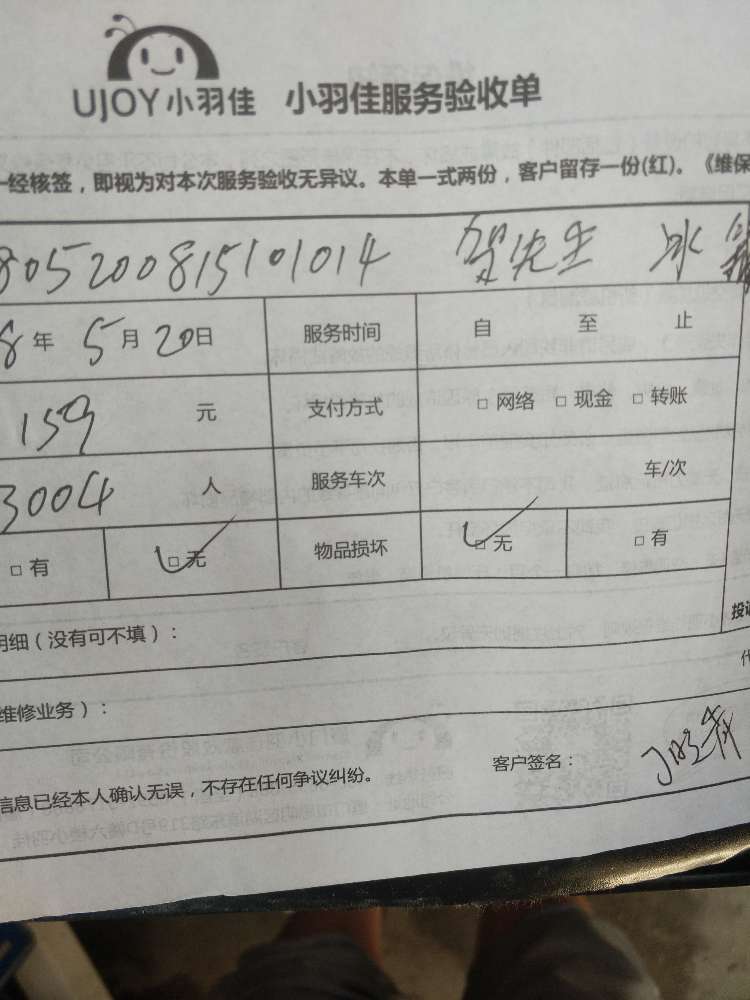 UJOY小羽佳 小羽佳服务验收单
一经核签，即视为对本次服务验收无异议。本单一式两份，客户留存一份(红)。《维保
805200815101014 贺先生 冰箱
8年 5月20日 服务时间 自 至 止
159 元 支付方式 □ 网络 □ 现金 □ 转账
3004 人 服务车次 车/次
□ 有 □ 无 物品损坏 □ 无 □ 有
明细（没有可不填）： 投诉
维修业务）： 代
客户签名：
信息已经本人确认无误，不存在任何争议纠纷。